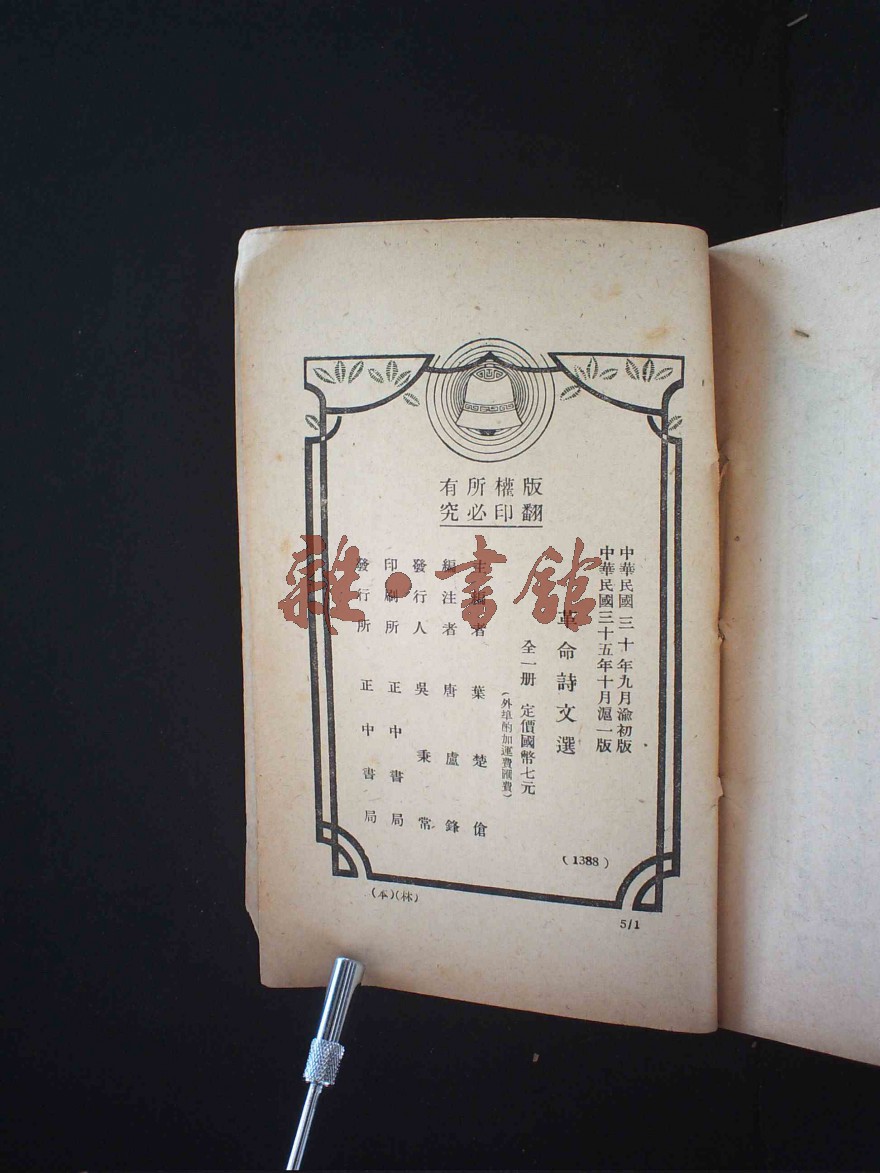 版權所有
翻印必究
中華民國三十年九月渝初版
中華民國三十五年十月滬一版
革命詩文選
全一册 定價國幣七元
(外埠酌加運費匯費)
主編者 葉楚傖
編注者 唐盧鋒
發行人 吳秉常
印刷所 正中書局
發行所 正中書局
(1388)
(本)(林)
5/1
雜·書館